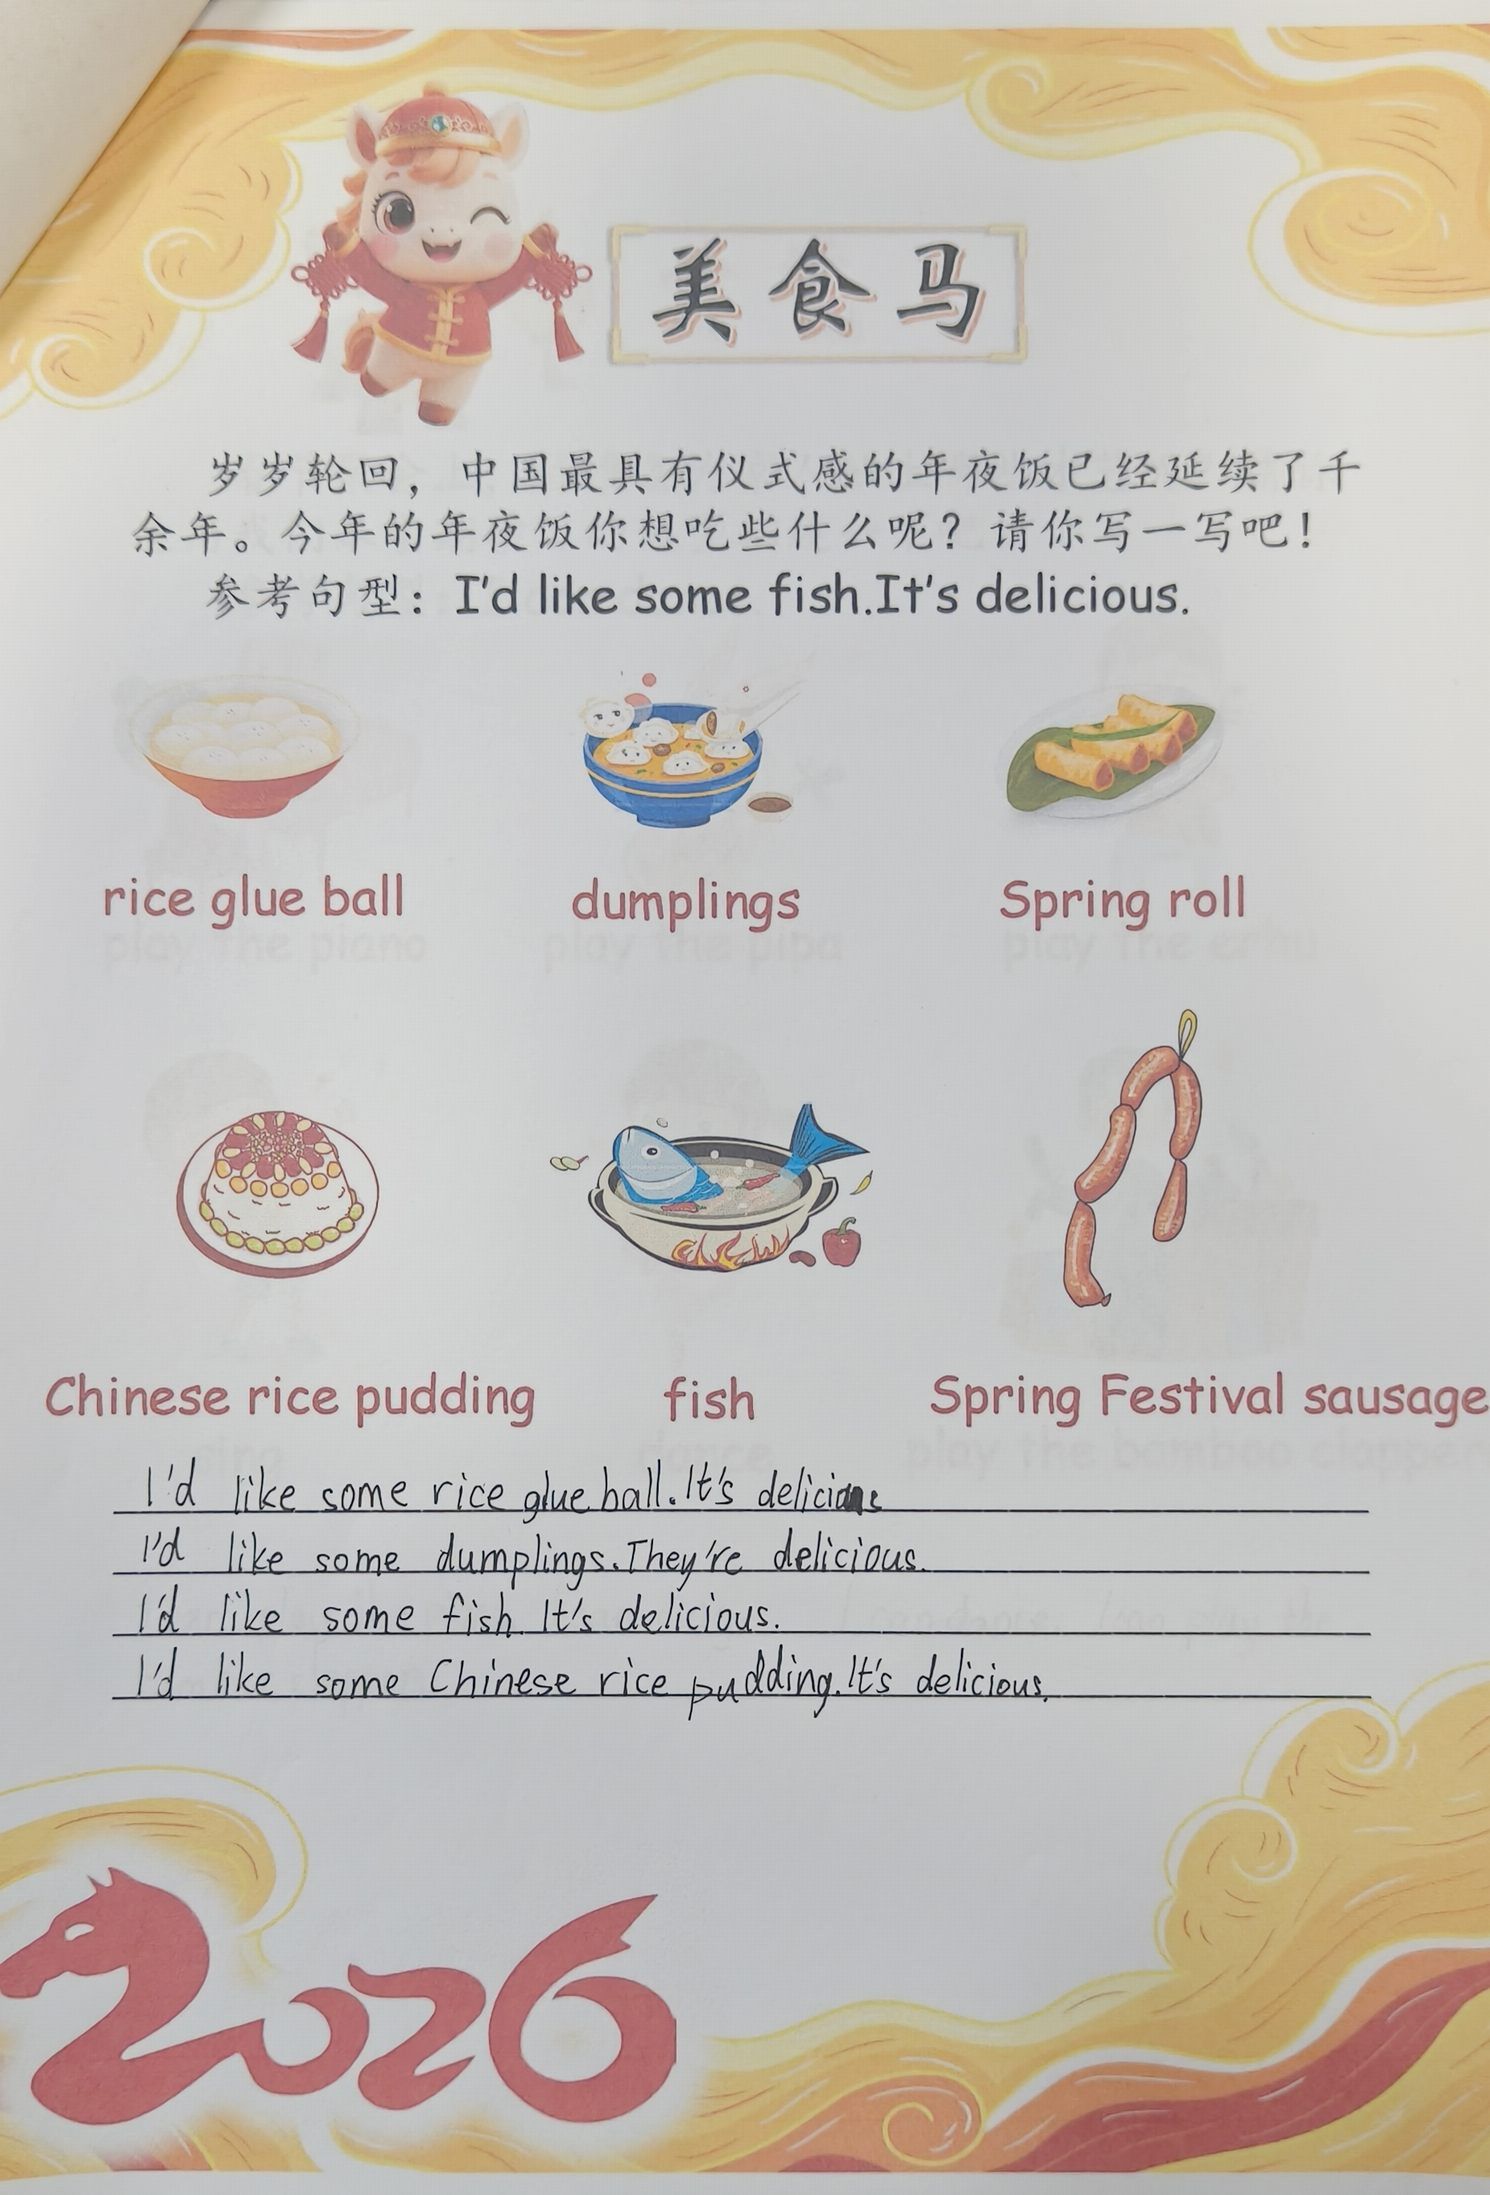 美食马
岁岁轮回，中国最具有仪式感的年夜饭已经延续了千
余年。今年的年夜饭你想吃些什么呢？请你写一写吧！
参考句型：I'd like some fish.It's delicious.
rice glue ball dumplings Spring roll
Chinese rice pudding fish Spring Festival sausage
I'd like some rice glue ball.It's
I'd like some dumplings.They're delicious.
I'd like some fish. It's delicious.
I'd like some Chinese rice pudding.It's delicious.
2026